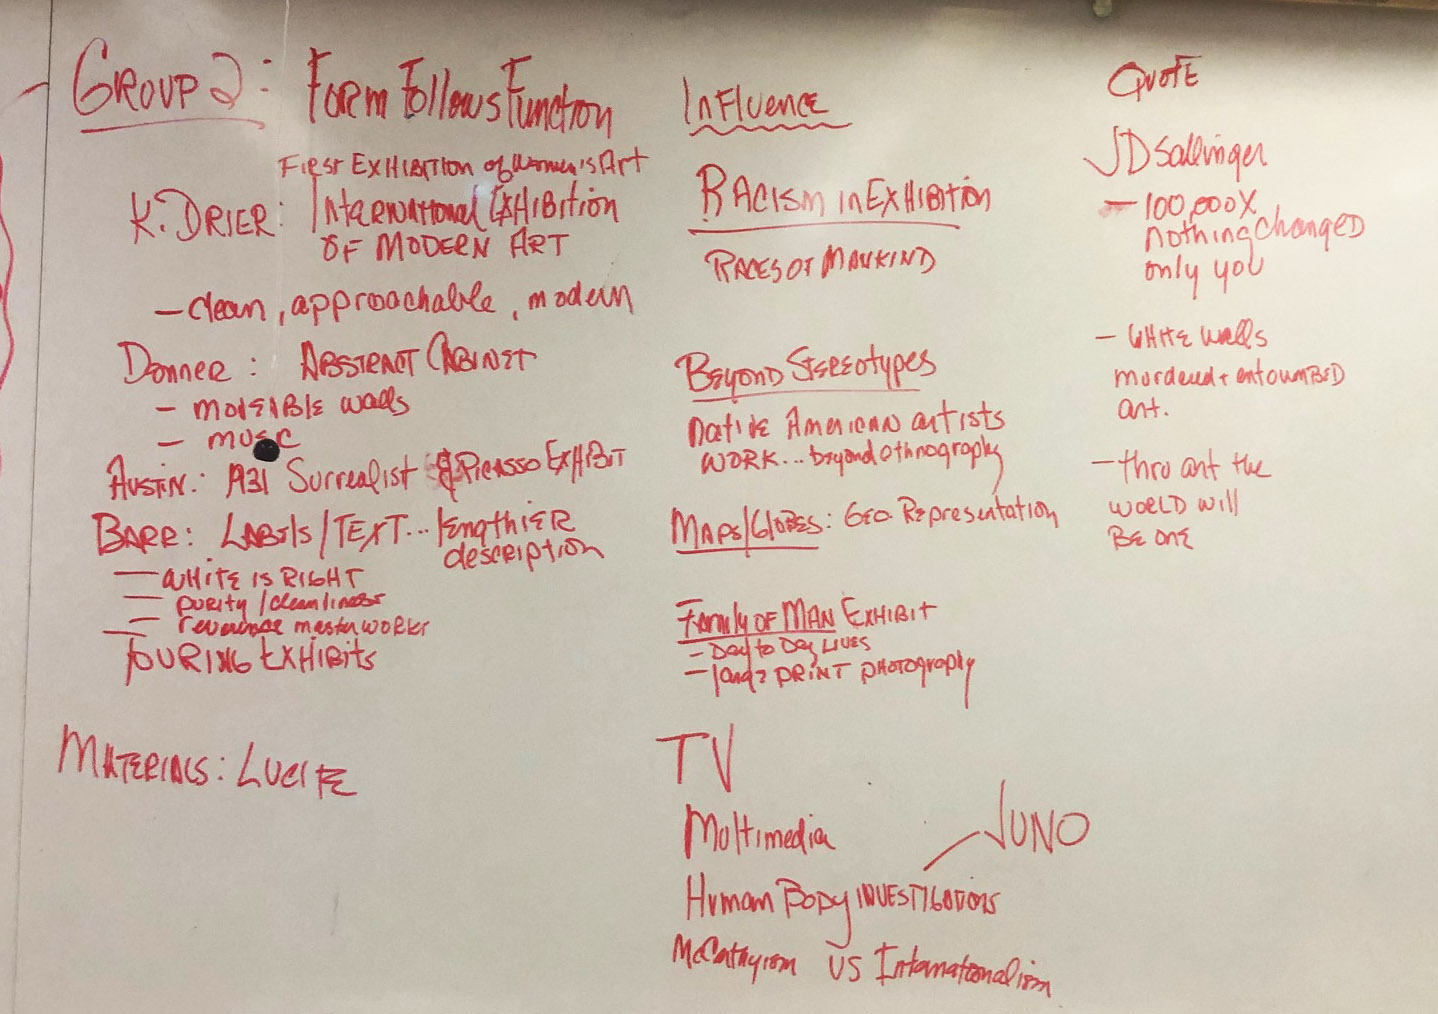 GROUP 2: Form Follows Function
First Exhibition of Women's Art
K. Drier: International Exhibition
of Modern Art
- clean, approachable, modern
Donner: Abstract Cabinet
- moveable walls
- music
Austin: A31 Surrealist & Picasso Exhibit
Barr: Labels/Text... lengthier
description
- white is right
- purity/cleanliness
- reverence master works
- Touring Exhibits
Materials: Lucite
Influence
Racism in Exhibition
Races of Mankind
Beyond Stereotypes
Native American artists
work... beyond ethnography
Maps/Globes: Geo. Representation
Family of Man Exhibit
- Day to Day Lives
- print photography
TV
Multimedia
JUNO
Human Body Investigations
McCathyism vs Internationalism
Quote
JD Sallinger
- 100,000X
nothing changed
only you
- White walls
murdered + entoumbed
art.
- thru art the
world will
be one